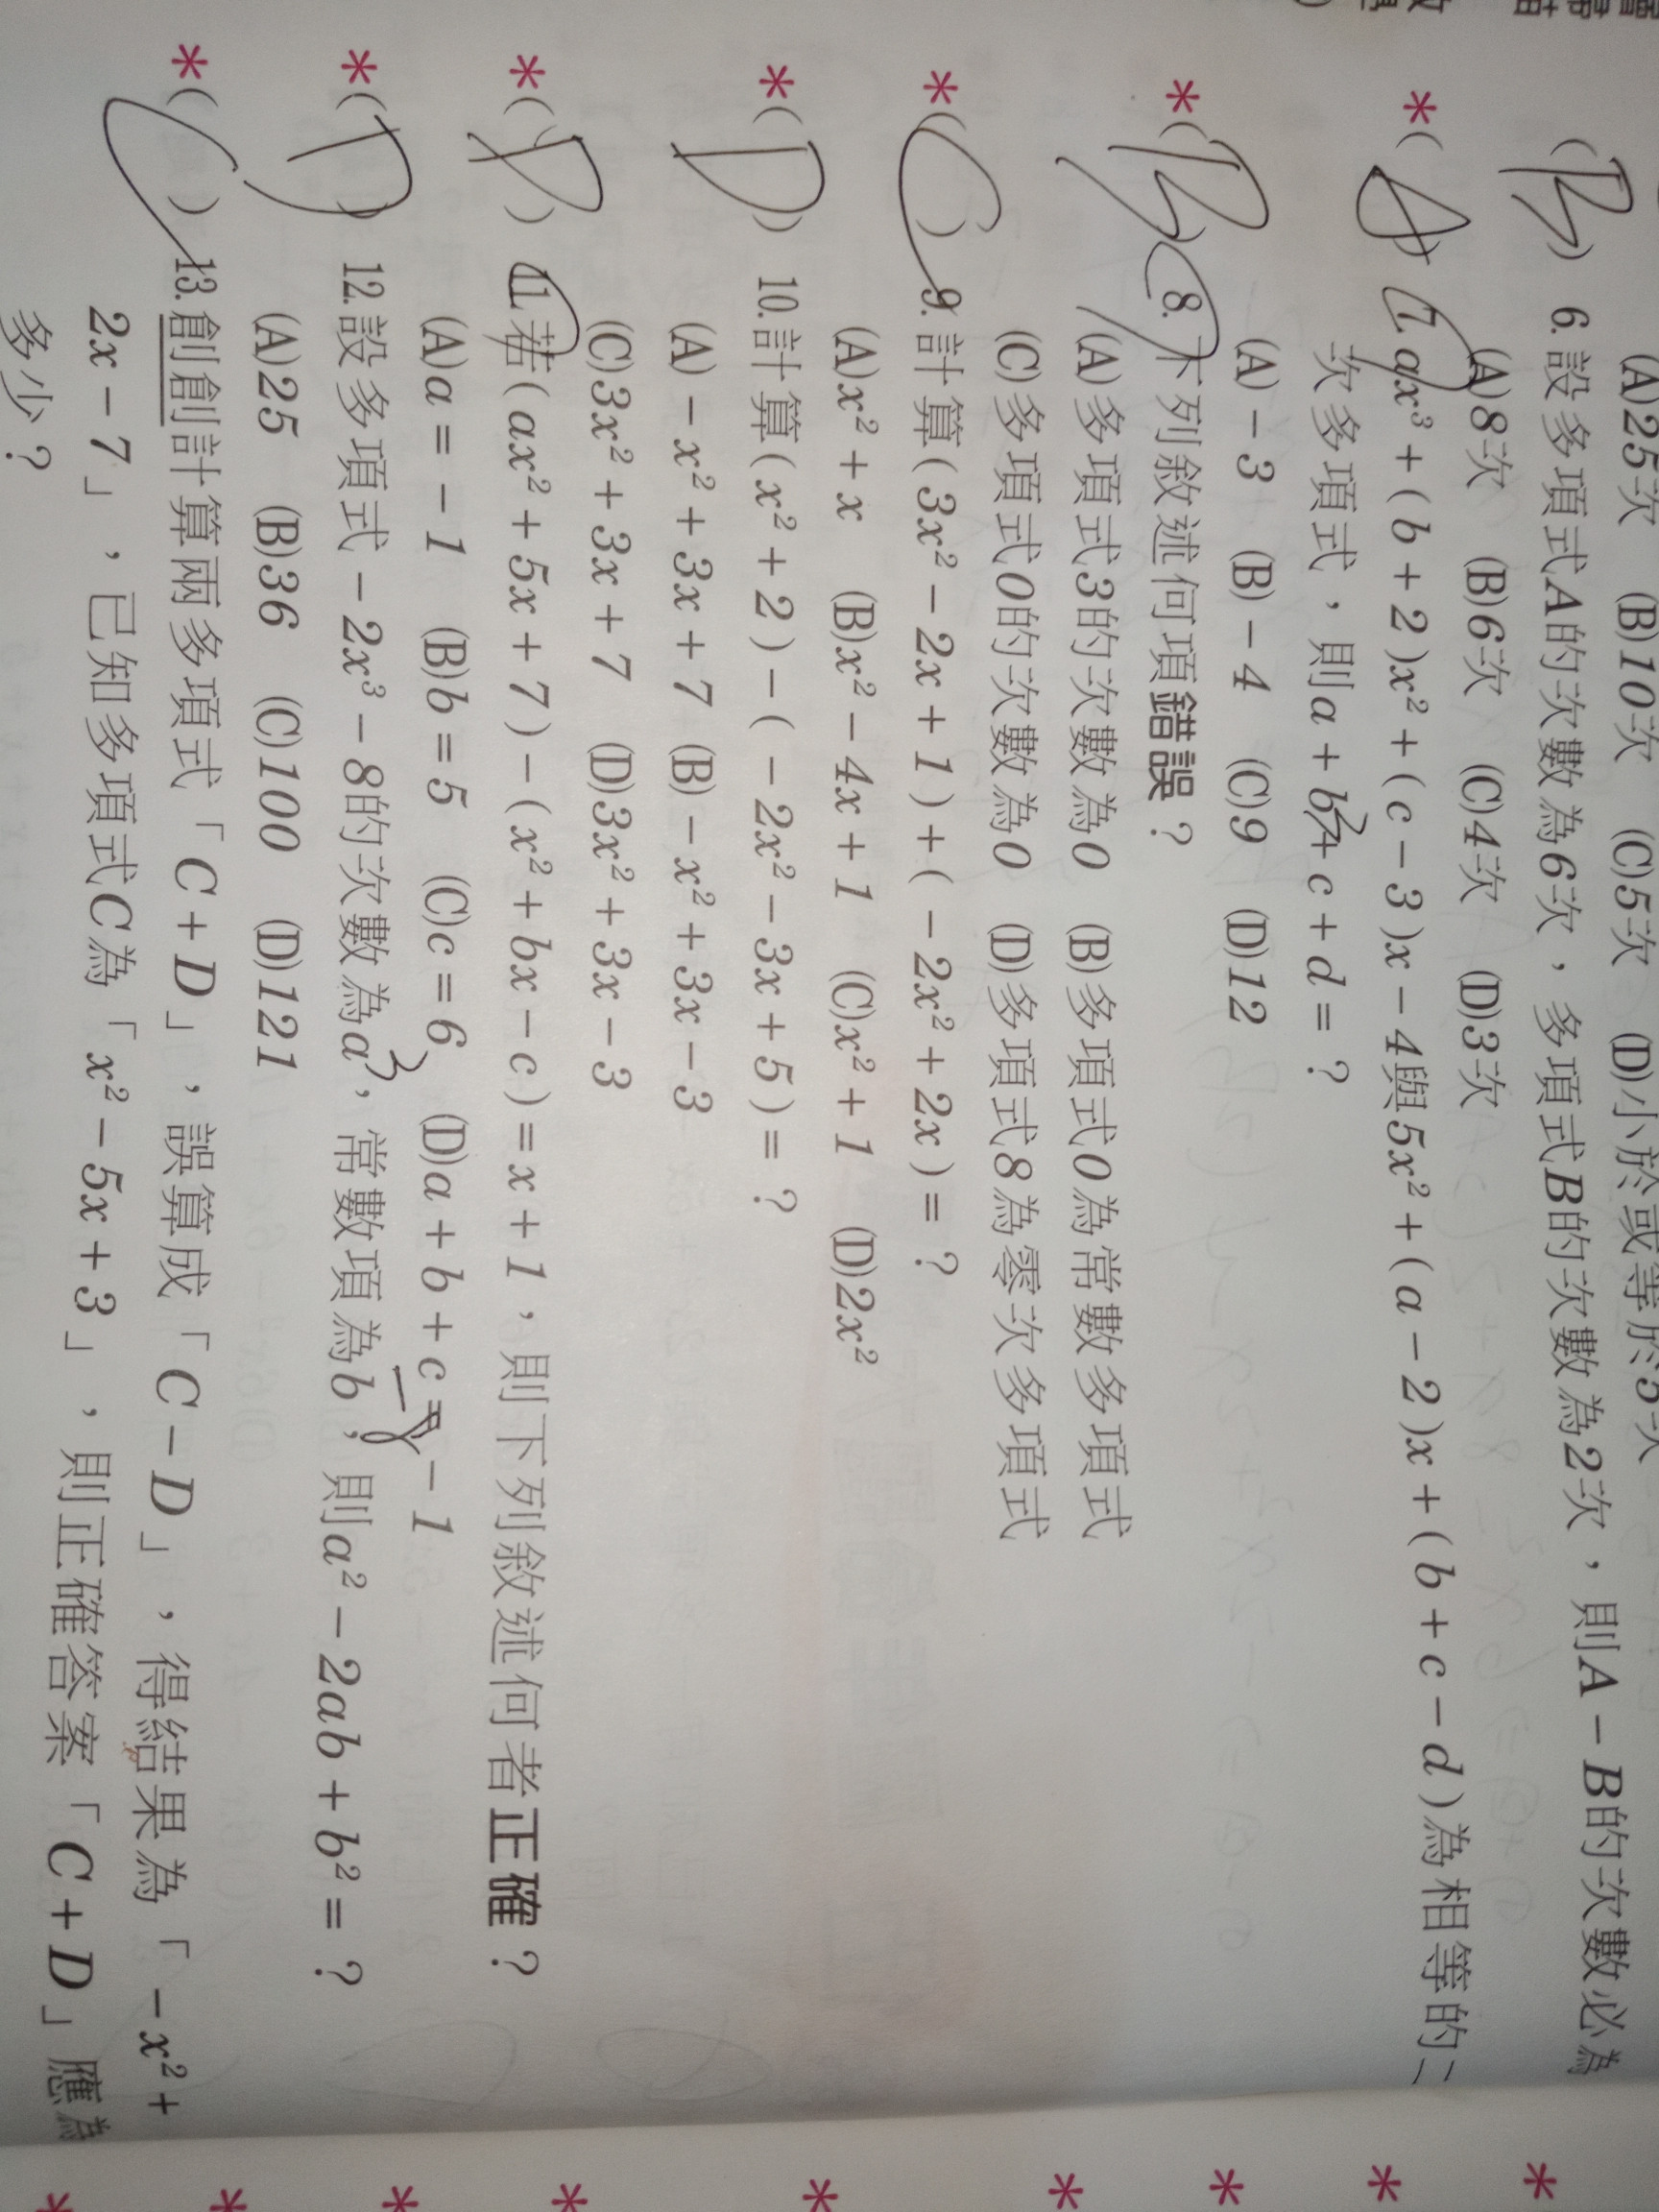 (A)25次 (B)10次 (C)5次 (D)小於或等於5次
(B) 6.設多項式A的次數為6次，多項式B的次數為2次，則A－B的次數必為
(A)8次 (B)6次 (C)4次 (D)3次
*(A) 7.ax³＋(b＋2)x²＋(c－3)x－4與5x²＋(a－2)x＋(b＋c－d)為相等的二
次多項式，則a＋b＋c＋d＝？
(A)－3 (B)－4 (C)9 (D)12
*(B) 8.下列敘述何項錯誤？
(A)多項式3的次數為0 (B)多項式0為常數多項式
(C)多項式0的次數為0 (D)多項式8為零次多項式
*(C) 9.計算(3x²－2x＋1)＋(－2x²＋2x)＝？
(A)x²＋x (B)x²－4x＋1 (C)x²＋1 (D)2x²
*(D) 10.計算(x²＋2)－(－2x²－3x＋5)＝？
(A)－x²＋3x＋7 (B)－x²＋3x－3
(C)3x²＋3x＋7 (D)3x²＋3x－3
*(D) 11.若(ax²＋5x＋7)－(x²＋bx－c)＝x＋1，則下列敘述何者正確？
(A)a＝－1 (B)b＝5 (C)c＝6 (D)a＋b＋c＝－1
*(D) 12.設多項式－2x³－8的次數為a，常數項為b，則a²－2ab＋b²＝？
3
－8
(A)25 (B)36 (C)100 (D)121
*(C) 13.創創計算兩多項式「C＋D」，誤算成「C－D」，得結果為「－x²＋
2x－7」，已知多項式C為「x²－5x＋3」，則正確答案「C＋D」應為
多少？